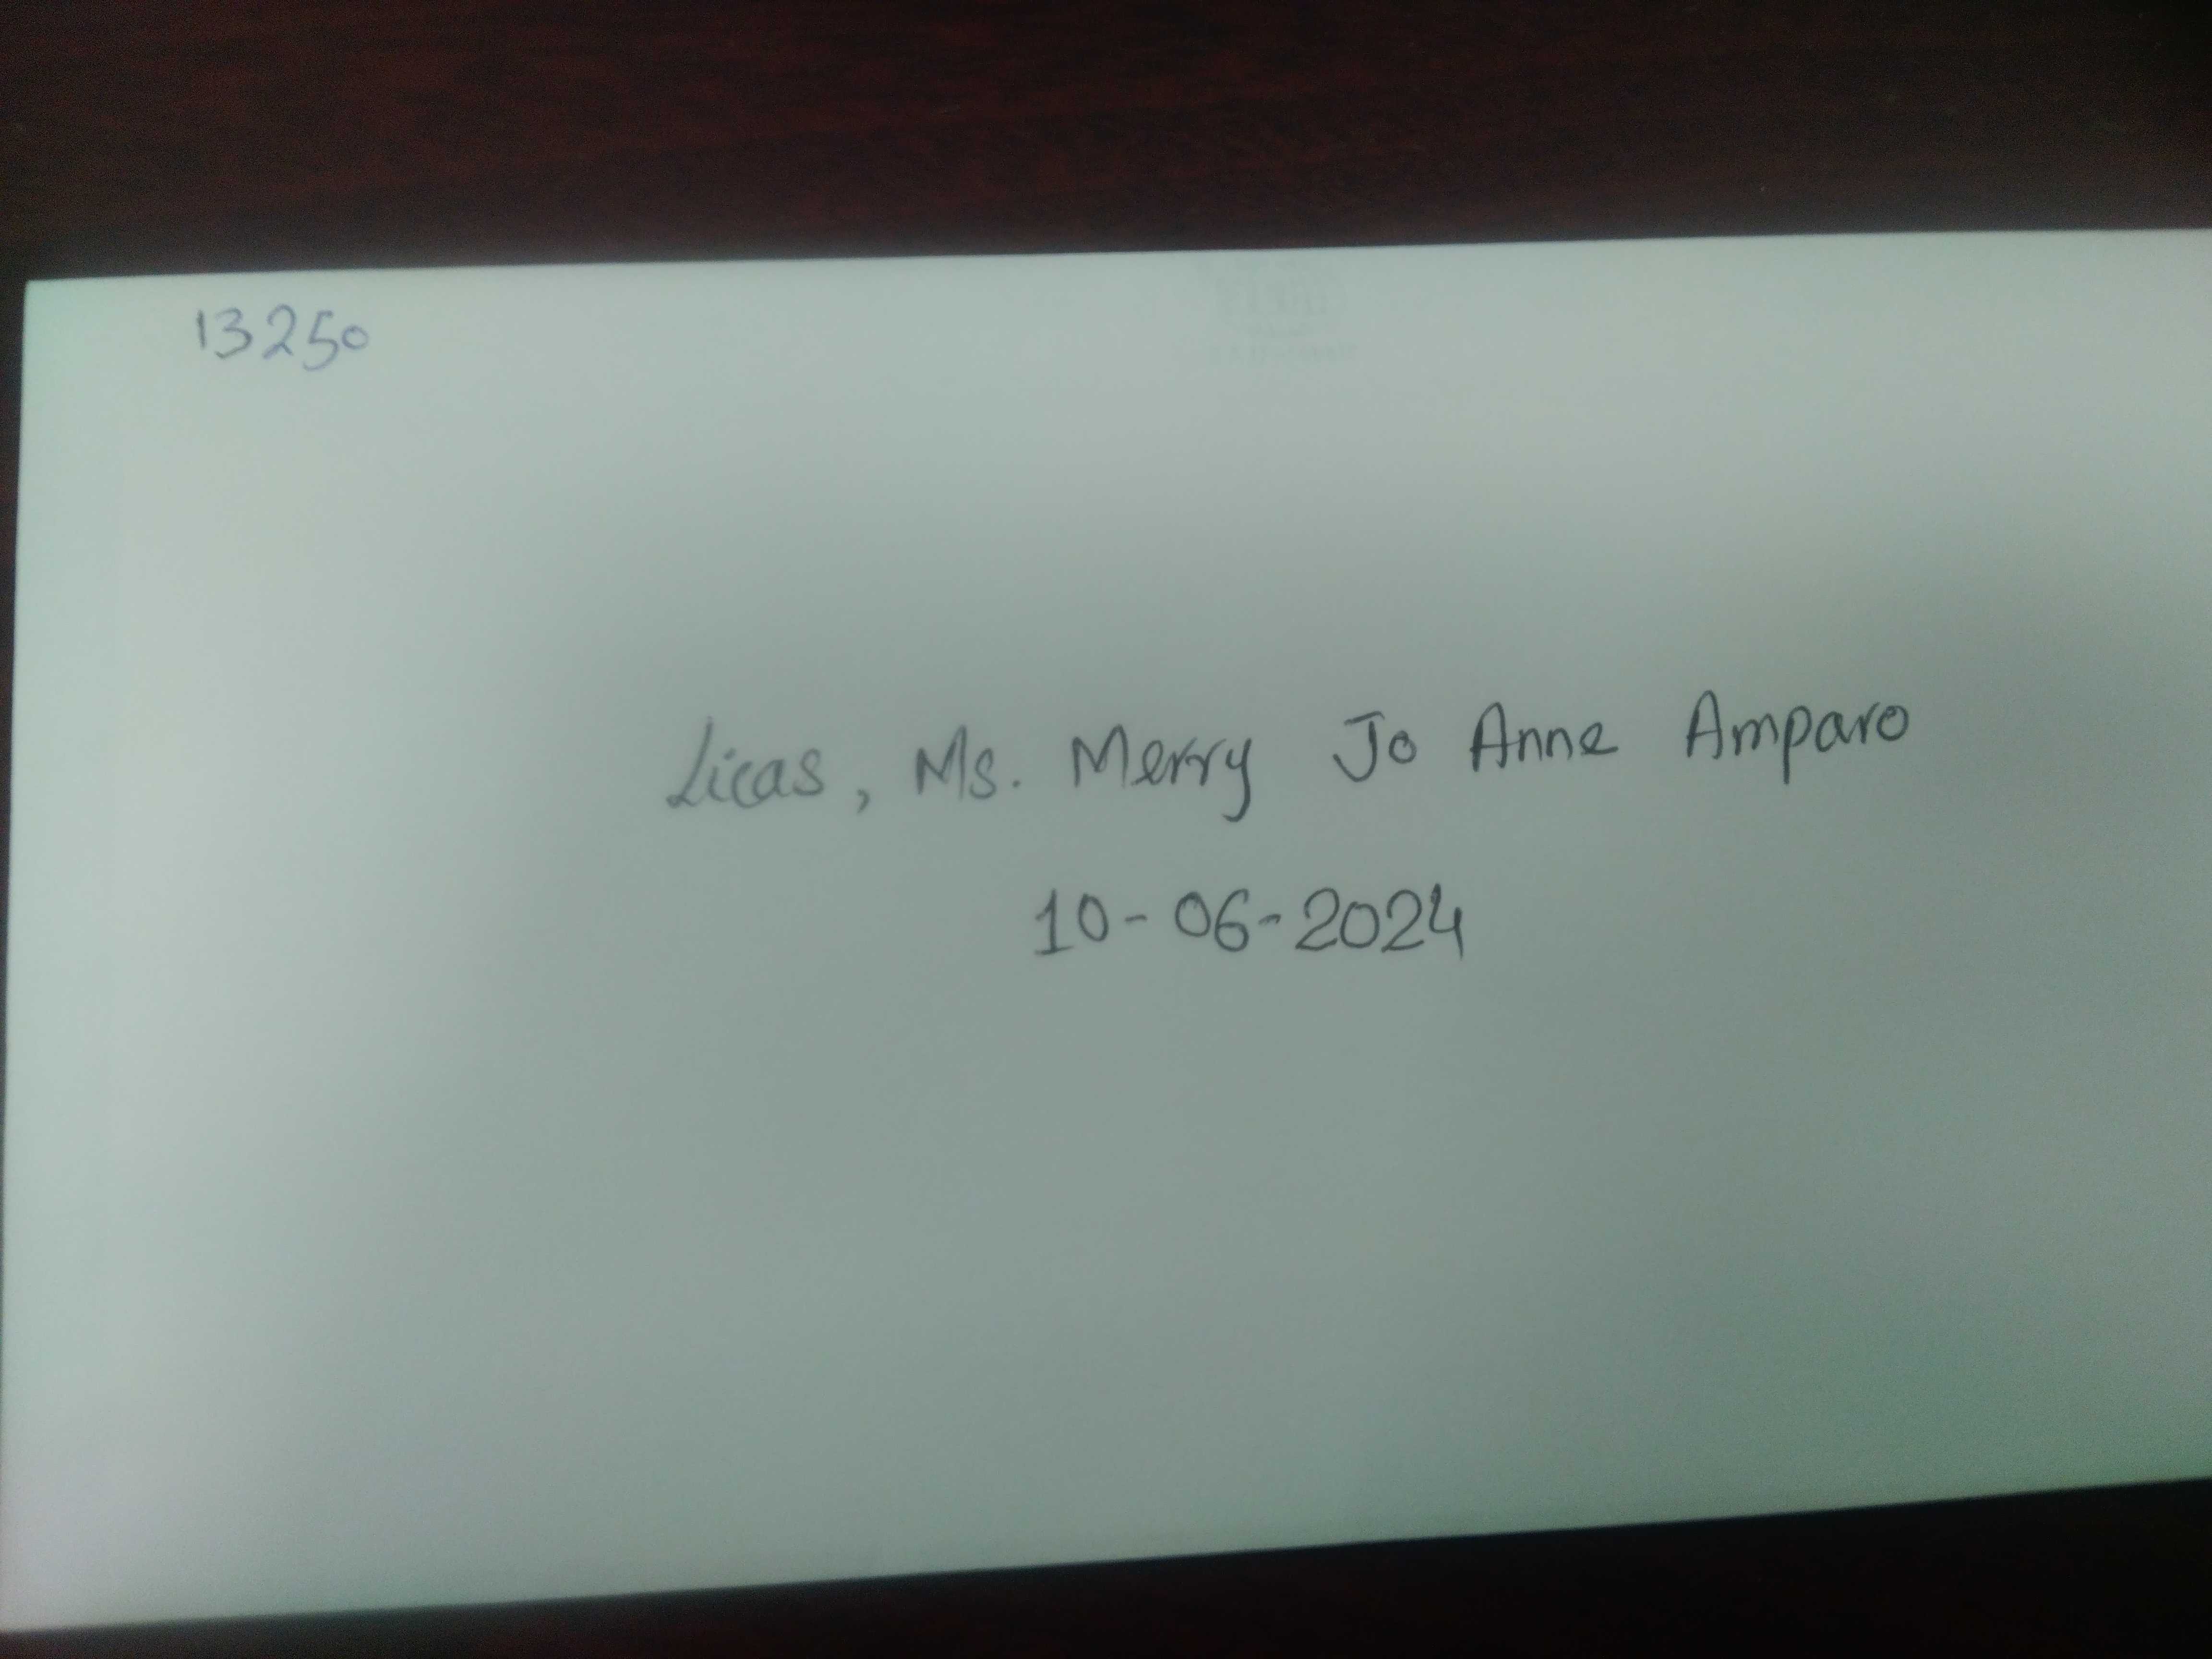 13250
Licas, Ms. Merry Jo Anne Amparo
10-06-2024